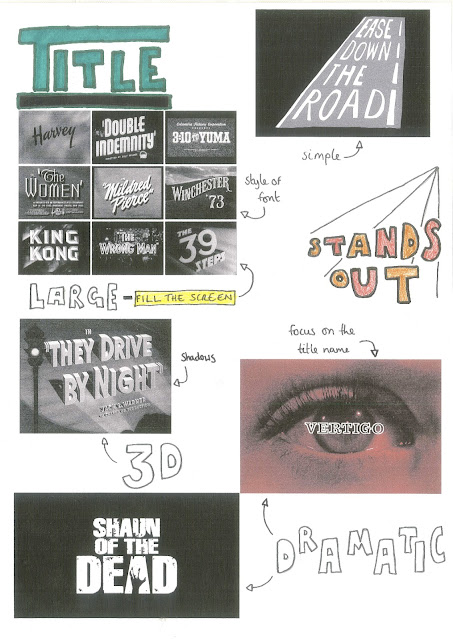 TITLE
EASE
DOWN
THE
ROAD
simple
Harvey
"DOUBLE
INDEMNITY"
Columbia Pictures Corporation
3:10 TO YUMA
"The
WOMEN"
"Mildred
Pierce"
WINCHESTER
'73
KING
KONG
THE
WRONG MAN
THE
39
STEPS
style of
font
STANDS
OUT
LARGE - FILL THE SCREEN
IN
"THEY DRIVE
BY NIGHT"
shadows
3D
focus on the
title name
VERTIGO
SHAUN
OF THE
DEAD
DRAMATIC